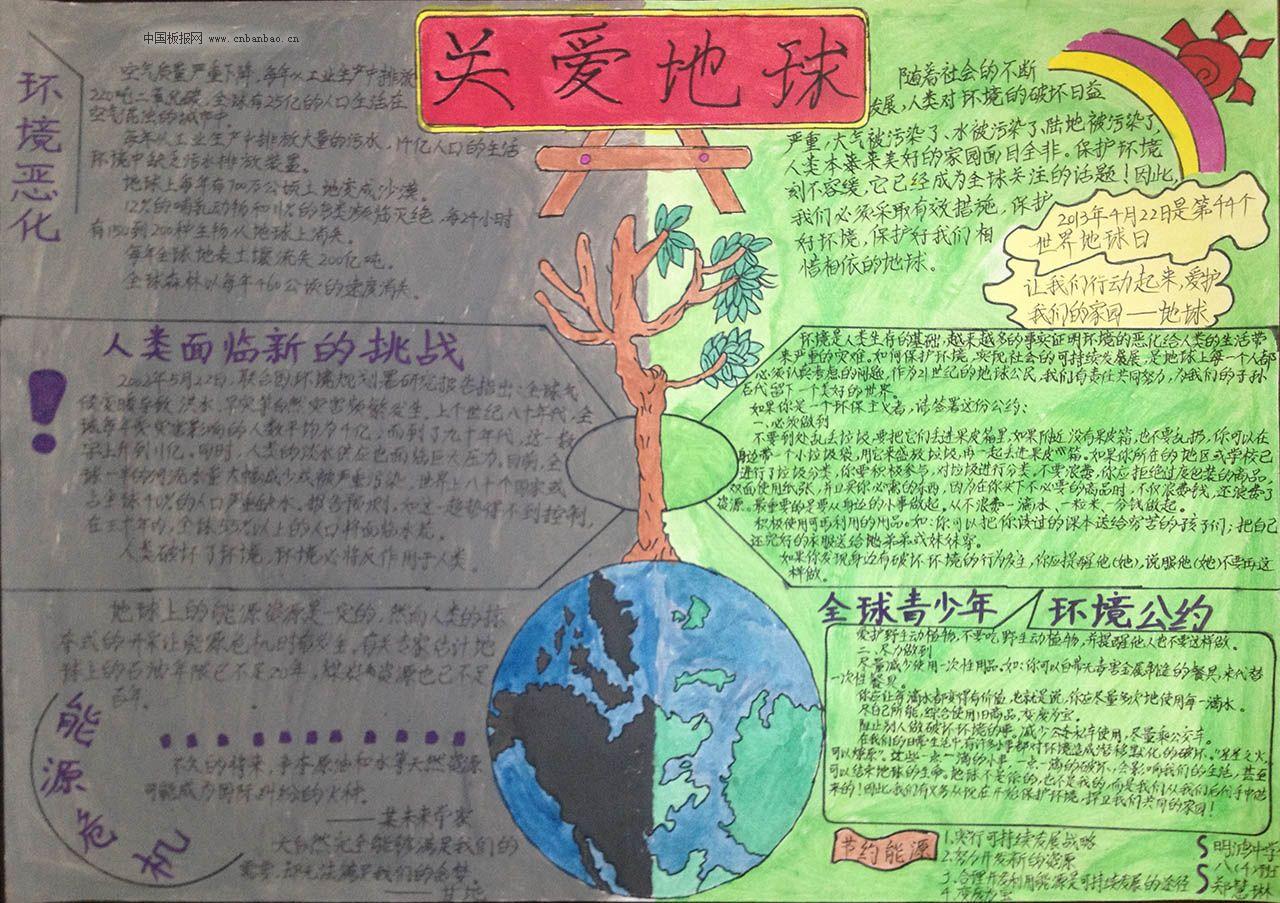 中国板报网 www.cnbanbao.cn
关爱地球
环境恶化
空气质量严重下降,每年从工业生产中排放
220吨二氧化碳,全球有25亿的人口生活在
空气混浊的城市中。
每年从工业生产中排放大量的污水,14亿人口的生活
环境中缺乏污水排放装置。
地球上每年有700万公顷土地变成沙漠。
12%的哺乳动物和11%的鸟类濒临灭绝,每24小时
有150到200种生物从地球上消失。
每年全球地表土壤流失200亿吨。
全球森林以每年460公顷的速度消失。
随着社会的不断
发展,人类对环境的破坏日益
严重,大气被污染了、水被污染了、陆地被污染了,
人类本来美好的家园面目全非。保护环境
刻不容缓,它已经成为全球关注的话题!因此,
我们必须采取有效措施,保护
好环境,保护好我们相
惜相依的地球。
2013年4月22日是第44个
世界地球日
让我们行动起来,爱护
我们的家园——地球
人类面临新的挑战
!
2002年5月22日,联合国环境规划署研究报告指出:全球气
候变暖导致洪水、旱灾等自然灾害频繁发生。上个世纪八十年代,全
球每年受灾害影响的人数平均为1亿,而到了九十年代,这一数
字上升到2亿。同时,人类的淡水供应也面临巨大压力。目前,全
球一半的河流水量大幅减少或被严重污染,世界上八十个国家或
占全球40%的人口严重缺水。报告预测,如这一趋势得不到控制,
在三十年内,全球55%以上的人口将面临水荒。
人类破坏了环境,环境必将反作用于人类。
环境是人类生存的基础,越来越多的事实证明环境的恶化给人类的生活带
来严重的灾难。如何保护环境,实现社会的可持续发展,是地球上每一个人都
必须认真考虑的问题。作为21世纪的地球公民,我们有责任共同努力,为我们的子孙
后代留下一个美好的世界。
如果你是一个环保主义者,请签署这份公约:
一、必须做到
不要到处乱丢垃圾,要把它们丢进果皮箱里,如果附近没有果皮箱,也不要乱扔,你可以在
身边带一个小垃圾袋,用它来盛放垃圾,再一起丢进果皮箱。如果你所在的地区或学校已
进行了垃圾分类,你要积极参与,对垃圾进行分类。不要浪费,你应拒绝过度包装的商品,
双面使用纸张,并且买你必需的东西,因为在你买下不必要的商品时,不仅浪费钱,还浪费了
资源。最重要的是要从身边的小事做起。从不浪费一滴水、一粒米、一分钱做起。
积极使用可再利用的用品。如:你可以把你读过的课本送给穷苦的孩子们;把自己
还完好的衣服送给弟弟或妹妹穿。
如果你发现身边有破坏环境的行为发生,你应提醒他(她),说服他(她)不要再这
样做。
全球青少年 环境公约
爱护野生动植物,不要吃野生动植物,并提醒他人也不要这样做。
二、尽力做到
尽量减少使用一次性用品。如:你可以自带无毒害金属制造的餐具,来代替
一次性餐具。
你应让每滴水都变得有价值,也就是说,你应尽量多次地使用每一滴水。
尽自己所能,综合使用旧商品,变废为宝。
阻止别人做破坏环境的事。减少公务水车使用,尽量乘公交车。
在我们的日常生活中,有许多小事都对环境造成潜移默化的破坏。“星星之火,
可以燎原”。这些一点一滴的小事,一点一滴的破坏,会影响我们的生活,甚至
可以结束地球的生命。地球不是你的,也不是我的,而是我们从我们后代手中借
来的!因此,我们有义务从现在开始保护环境,捍卫我们共同的家园!
地球上的能源资源是一定的,然而人类的掠
夺式的开采让能源危机时有发生。有关专家估计地
球上的石油年限已不足20年,煤炭资源也已不足
百年。
能源危机
不久的将来,争夺原油和水等天然资源
可能成为国际纠纷的火种。
——某未来学家
大自然完全能够满足我们的
需要,却无法满足我们的贪婪。
——甘地
节约能源
1.实行可持续发展战略
2.努力开发新的能源
3.合理开发利用能源是可持续发展的途径
4.变废为宝
明鸿中学
八(4)班
郑慧琳